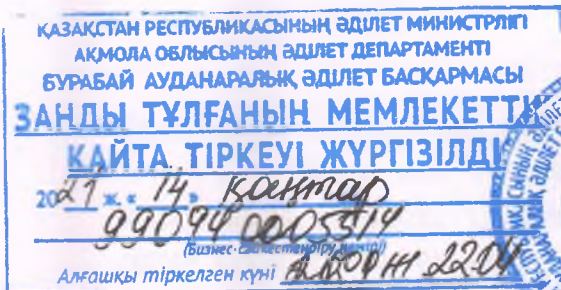 ҚАЗАҚСТАН РЕСПУБЛИКАСЫНЫҢ ӘДІЛЕТ МИНИСТРЛІГІ
АҚМОЛА ОБЛЫСЫНЫҢ ӘДІЛЕТ ДЕПАРТАМЕНТІ
БУРАБАЙ АУДАНАРАЛЫҚ ӘДІЛЕТ БАСҚАРМАСЫ
ЗАҢДЫ ТҰЛҒАНЫҢ МЕМЛЕКЕТТІК
ҚАЙТА ТІРКЕУІ ЖҮРГІЗІЛДІ
2021 ж. «14» қаңтар
990940005514
(Бизнес-сәйкестендіру нөмірі)
Алғашқы тіркелген күні 22.04